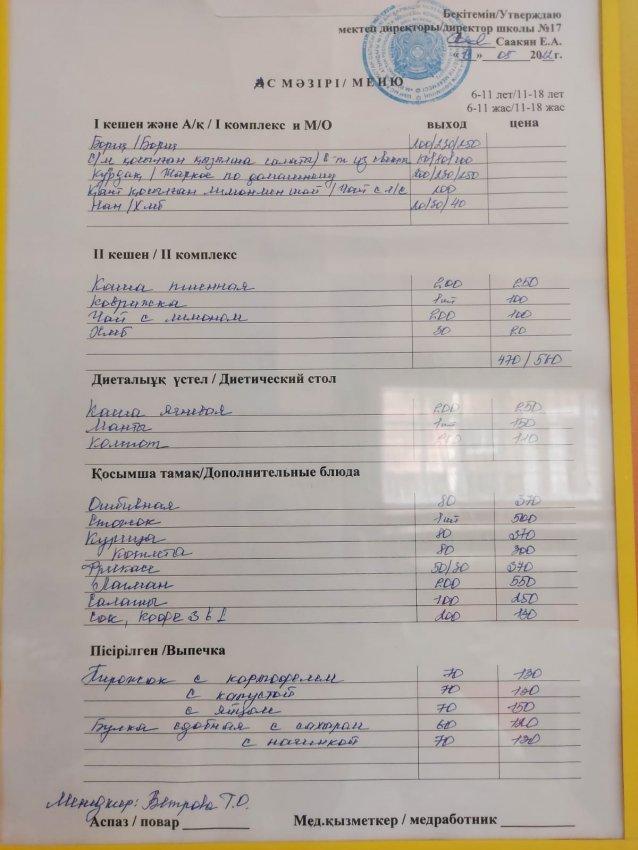 Бекітемін/Утверждаю
мектеп директоры/директор школы №17
Саакян Е.А.
05 2022г.
АС МӘЗІРІ/ МЕНЮ
6-11 лет/11-18 лет
6-11 жас/11-18 жас
I кешен және А/қ / I комплекс и М/О выход цена
Борщ / Борщ 200/250/250
қызылша салаты/
Қуырдақ / Жаркое по домашнему
Қант қосылған лимонмен шай / Чай с л/с 200
Нан / Хлеб 20/30/40
II кешен / II комплекс
Каша пшенная 200 250
Коврижка 1 шт 100
Чай с лимоном 200 100
Хлеб 30 20
470/560
Диеталық үстел / Диетический стол
Каша ячневая 200 250
Манты 1 шт 150
Компот 110
Қосымша тамақ/Дополнительные блюда
Отбивная 80 370
1 шт 500
Курица 80 370
Котлета 80 300
Фрикасе 50/30 370
Лагман 200 550
Салаты 100 250
Сок, Кофе 3 в 1 200 130
Пісірілген /Выпечка
Пирожок с картофелем 70 130
с капустой 70 130
с яйцом 70 150
Булка сдобная с сахаром 60 120
с начинкой 70 130
Менеджер: Ветрова Т.О.
Аспаз / повар Мед.қызметкер / медработник